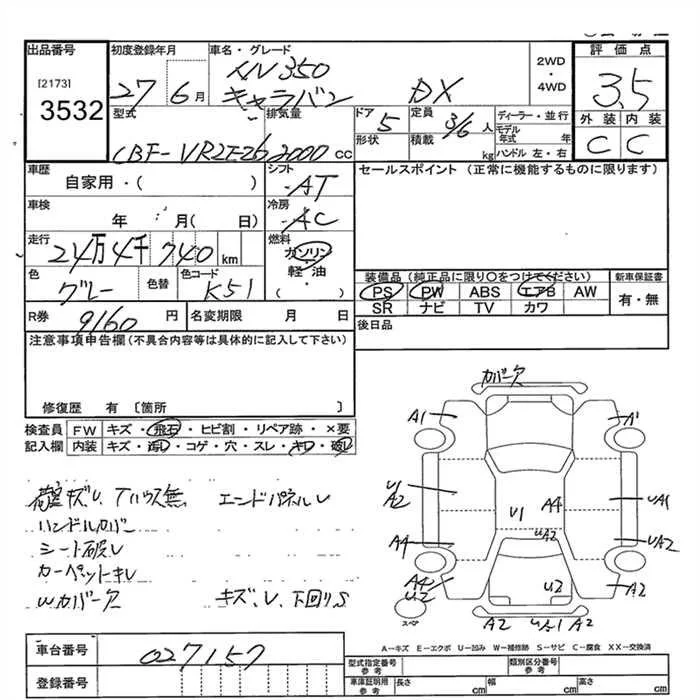 出品番号 初度登録年月 車名・グレード 2WD・4WD 評価点
[2173]
3532
27 6月 NV350 キャラバン DX 3.5
型式 排気量 ドア 5 定員 3/6人 ディーラー・並行 外装 内装
CBF-VR2E26 2000cc 形状 積載 kg モデル年式 年 ハンドル 左・右 C C
車歴 シフト セールスポイント (正常に機能するものに限ります)
自家用・( ) AT
車検 冷房
年 月(日) AC
走行 燃料
24万4千740km ガソリン・軽・油 ( )
色 色替 色コード 装備品 (純正品に限り○をつけてください) 新車保証書
グレー K51 PS PW ABS エアB AW 有・無
SR ナビ TV カワ
R券 9160円 名変期限 月 日 後日品
注意事項申告欄 (不具合内容等は具体的に記入して下さい)
修復歴 有 〔箇所 〕
検査員 FW キズ・飛石・ヒビ割・リペア跡・×要
記入欄 内装 キズ・汚レ・コゲ・穴・スレ・キレ・破レ
荷室キズU、Tハウス無 エンドパネルU
ハンドルカバー
シート破レ
カーペットキレ
Wカバー欠 キズ、U、下回りS
カバー欠
A1 A1
U1 A2 U1 A4 UA1
A4 UA2 UA2
A4 U2 U2 A2
スペア A2 U1 A2
A−キズ E−エクボ U−凹み W−補修跡 S−サビ C−腐食 XX−交換済
車台番号 027157 型式指定番号 参考 類別区分番号 参考
登録番号 車庫証明用 参考 長さ cm 幅 cm 高さ cm